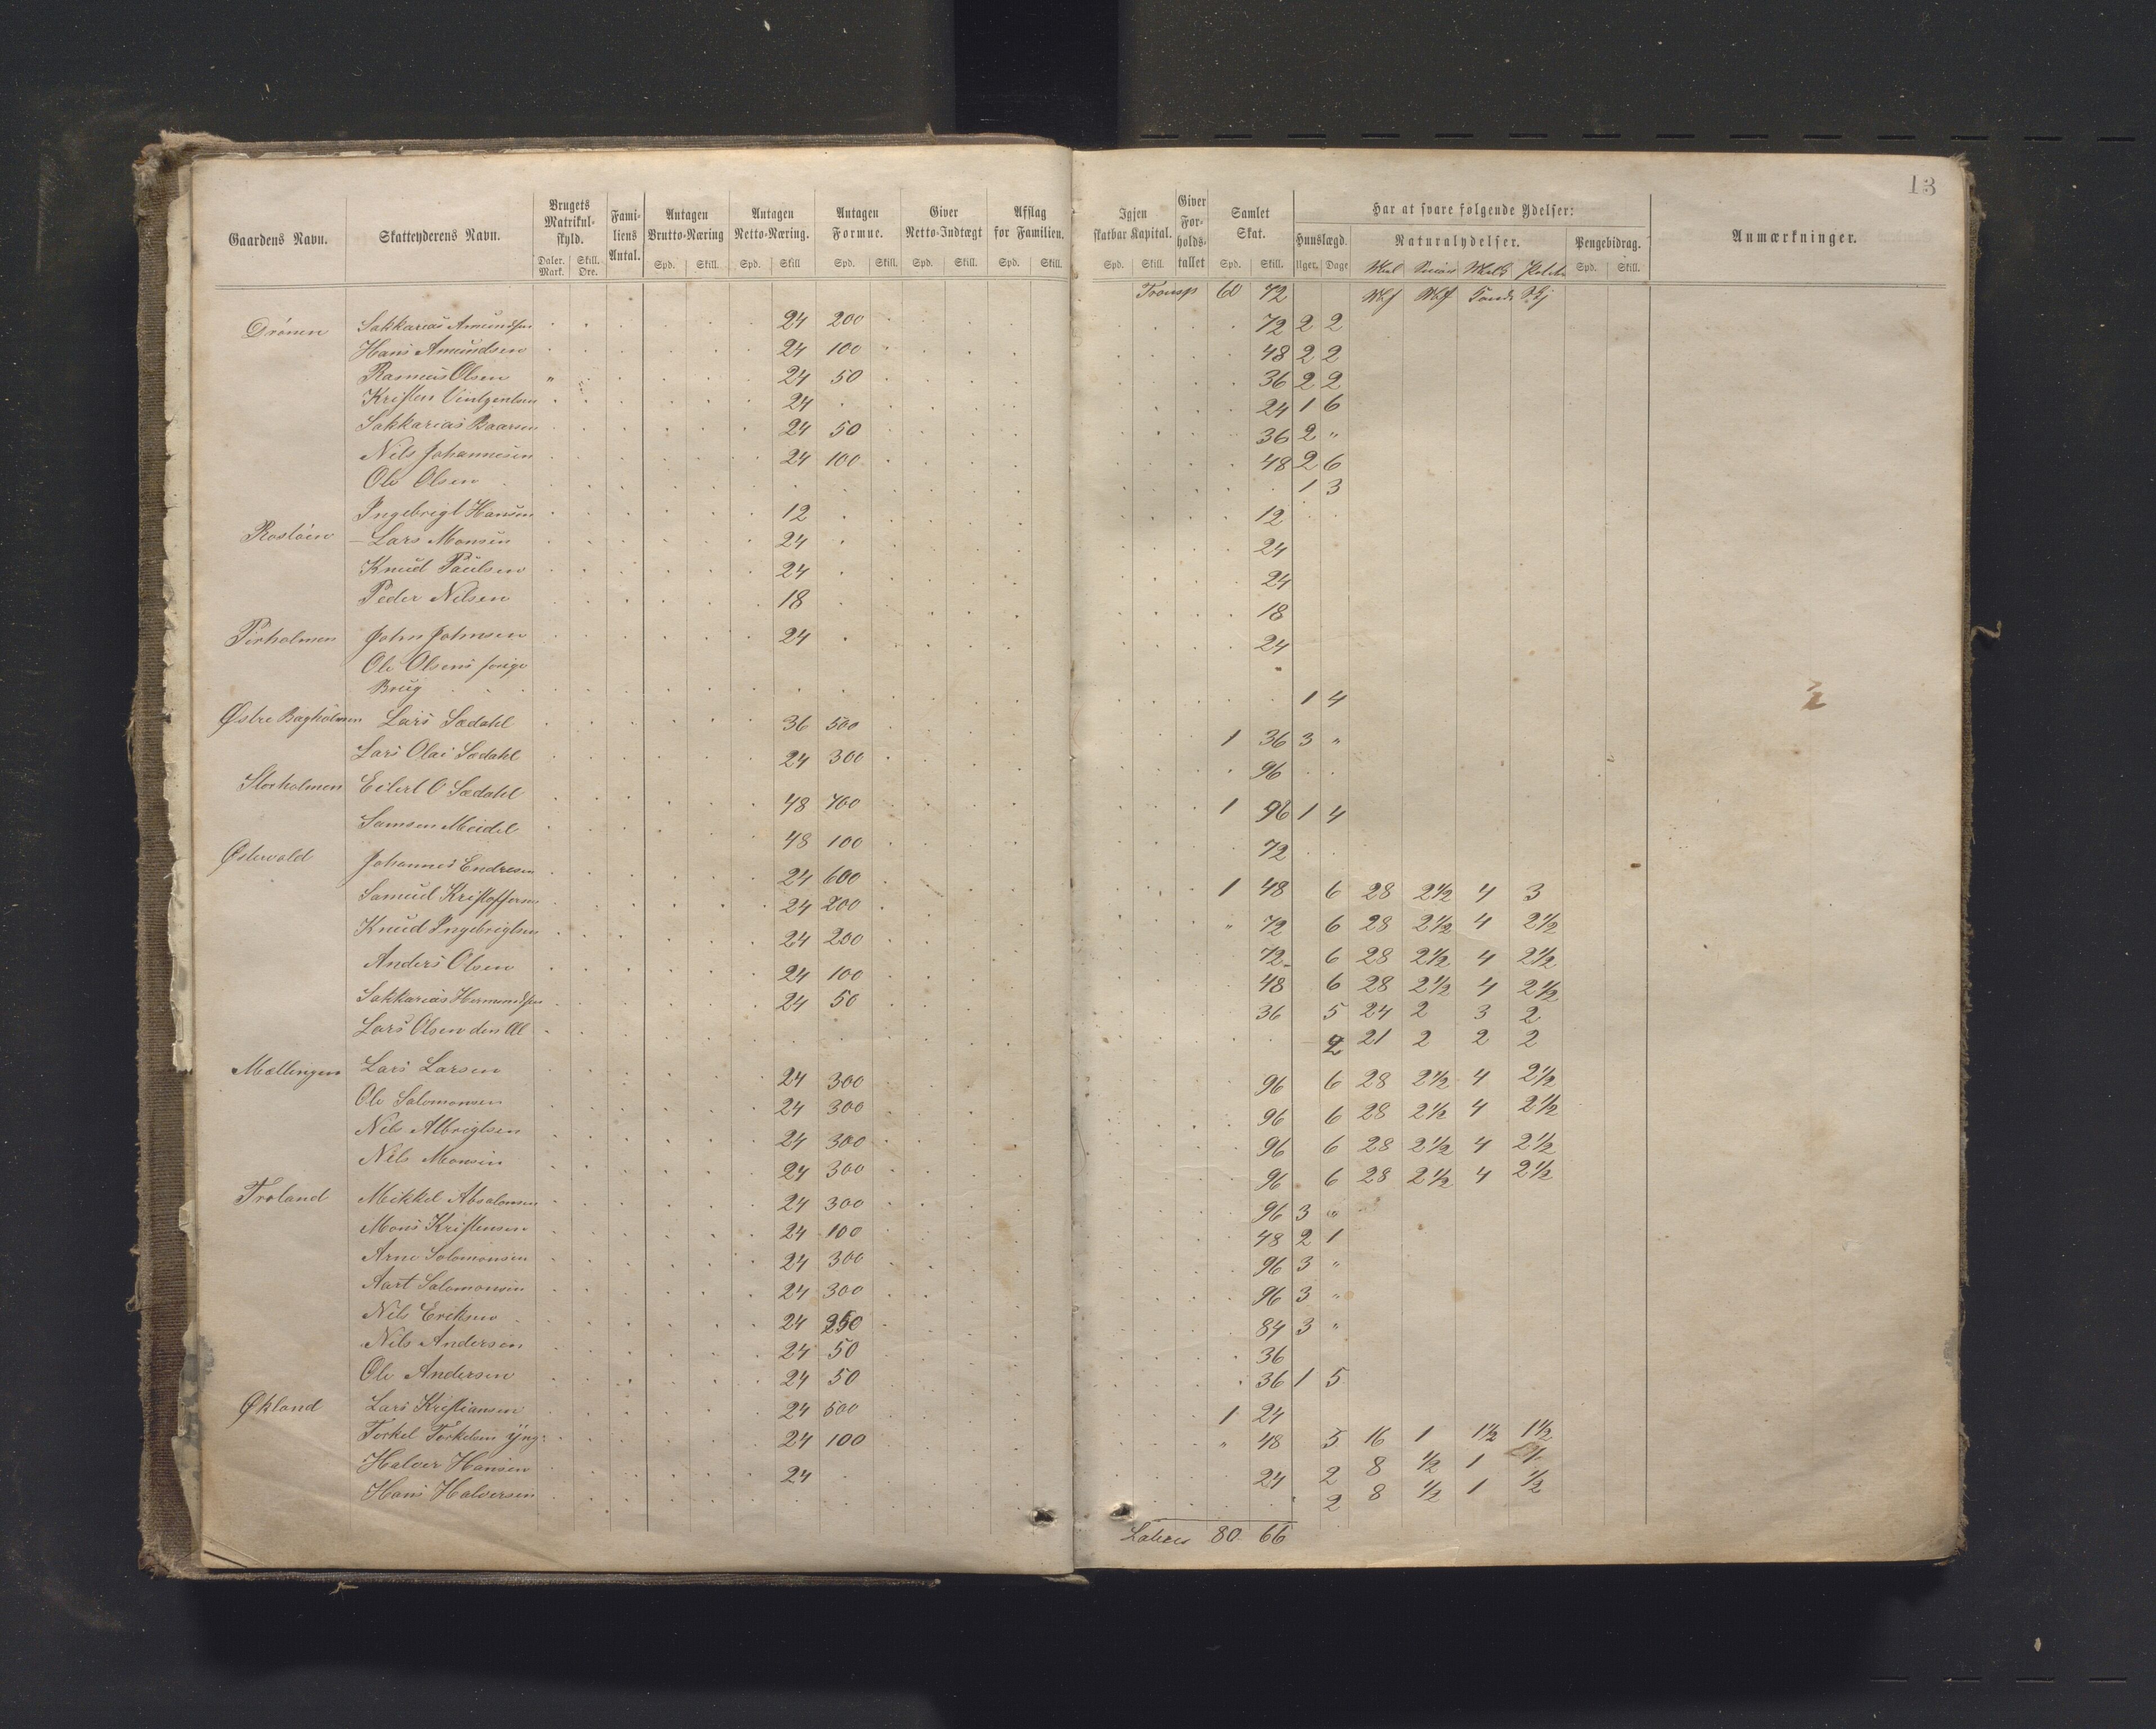 13
Gaardens Navn. Skatteyderens Navn. Brugets Matrikulskyld. Familiens Antal. Antagen Brutto-Næring Antagen Netto-Næring. Antagen Formue. Giver Netto-Indtægt Afslag for Familien. Igjen skatbar Kapital. Giver Forholdstallet Samlet Skat. Har at svare følgende Ydelser: Anmærkninger.
Huuslægd. Naturalydelser. Pengebidrag.
Daler. Mark. Skill. Ore. Spd. Skill. Spd. Skill Spd. Skill. Spd. Skill. Spd. Skill. Spd. Skill. Spd. Skill. Uger. Dage Spd. Skill.
Transp 60 72
Drønen Sakkarias Amundsen 24 200 72 2 2
Hans Amundsen 24 100 48 2 2
Rasmus Olsen " 24 50 36 2 2
Kristen 24 24 1 6
Sakkarias Baarsen 24 50 36 2 "
Nils Johannesen 24 100 48 2 6
Ole Olsen 1 3
Ingebrigt Hansen 12 12
Rosløen Lars Monsen 24 24
Knud Paulsen 24 24
Peder Nilsen 18 18
Pirholmen John Johnsen 24 24
Ole Olsens forige
Brug 1 4
Østre Bagholmen Lars Sædahl 36 500 1 36 3 "
Lars Olai Sædahl 24 300 96
Storholmen Eilert O Sædahl 48 700 1 96 1 4
Samson Meidel 48 100 72
Østervold Johannes Endresen 24 600 1 48 6 28 2½ 4 3
Samuel Kristoffersen 24 200 " 72 6 28 2½ 4 2½
Knud Ingebrigtsen 24 200 72 6 28 2½ 4 2½
Anders Olsen 24 100 48 6 28 2½ 4 2½
Sakkarias Hermundsen 24 50 36 5 24 2 3 2
Lars Olsen den Æl 2 21 2 2 2
Mællingen Lars Larsen 24 300 96 6 28 2½ 4 2½
Ole Salomonsen 24 300 96 6 28 2½ 4 2½
Nils Albrigtsen 24 300 96 6 28 2½ 4 2½
Nils Monsen 24 300 96 6 28 2½ 4 2½
Troland Mikkel Absalonsen 24 300 96 3 "
Mons Kristensen 24 100 48 2 1
Arne Salomonsen 24 300 96 3 "
Aart Salomonsen 24 300 96 3 "
Nils Eriksen 24 250 84 3 "
Nils Andersen 24 50 36
Ole Andersen 24 50 36 1 5
Økland Lars Kristiansen 24 600 1 24
Torkel Torkelsen yng: 24 100 " 48 5 16 1 1½ 1½
Halver Hansen 24 24 2 8 ½ 1
Hans Halversen 2 8 ½ 1 ½
Lateres 80 66